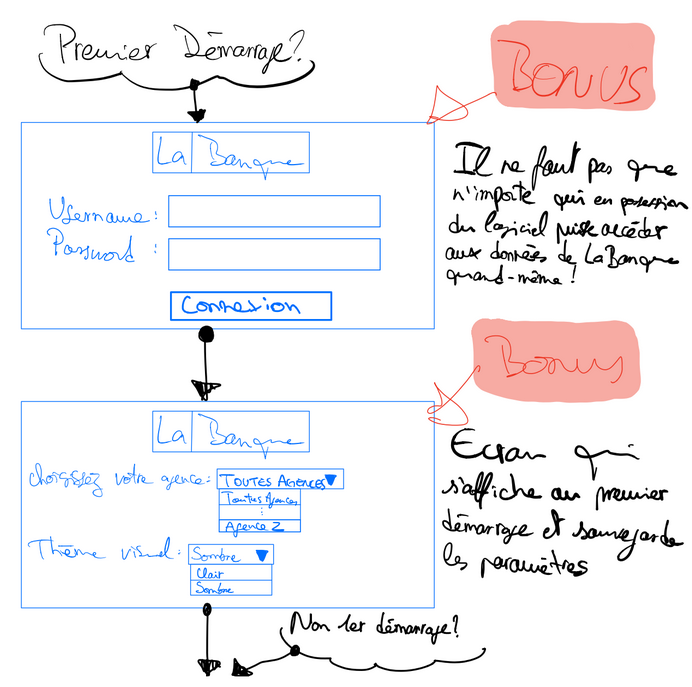 Premier Démarrage?
Bonus
La Banque
Username:
Password :
Connexion
Il ne faut pas que
n'importe qui en possession
du logiciel puisse accéder
aux données de LaBanque
quand-même!
Bonus
La Banque
choisissez votre agence:
TOUTES AGENCES
Toutes Agences
:
Agence Z
Thème visuel:
Sombre
Clair
Sombre
Ecran qui
s'affiche au premier
démarrage et sauvegarde
les paramètres
Non 1er démarrage?